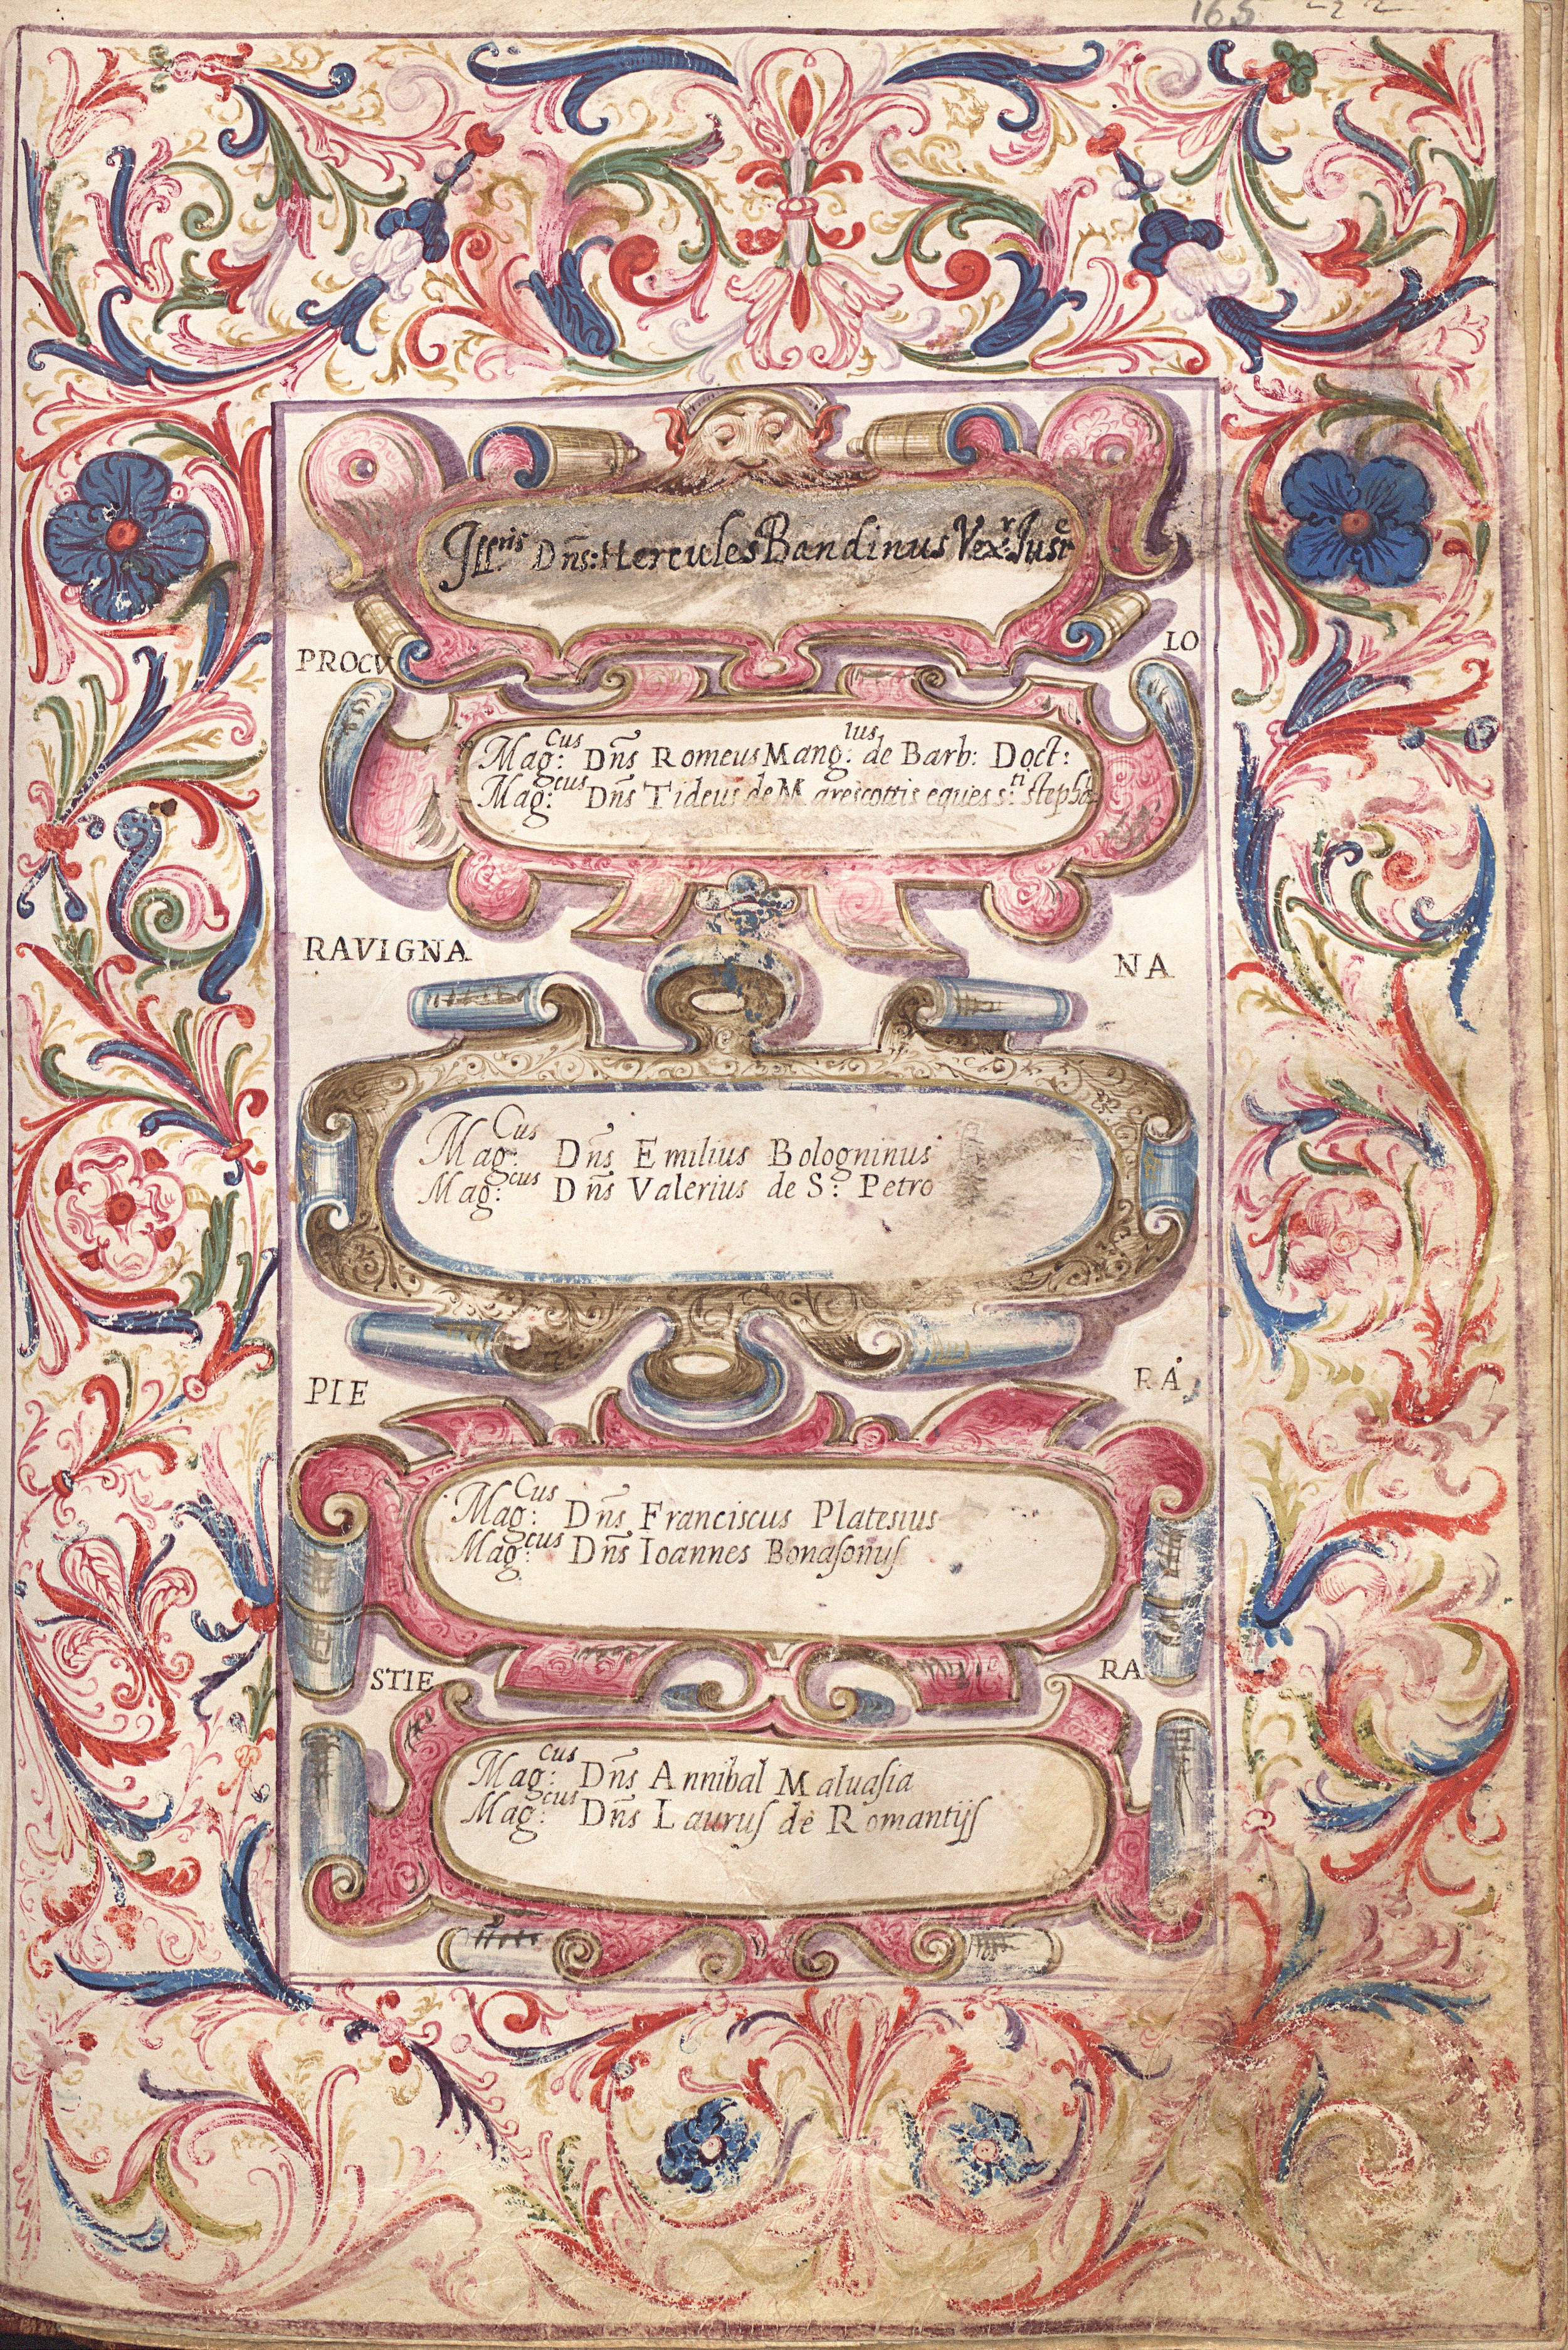 165 222
Ill:ris Dñs: Hercules Bandinus Vex:r Iust:e
PROCV LO
Mag:cus Dñs Romeus Mang:lus de Barb: Doct:
Mag:cus Dñs Tideus de Marescottis eques s:ti stepha
RAVIGNA NA
Mag:Cus Dñs Emilius Bologninus
Mag:cus Dñs Valerius de S: Petro
PIE RA
Mag:Cus Dñs Franciscus Platesius
Mag:cus Dñs Ioannes Bonaſonuſ
STIE RA
Mag:cus Dñs Annibal Maluaſia
Mag:cus Dñs Lauruſ de Romantijſ